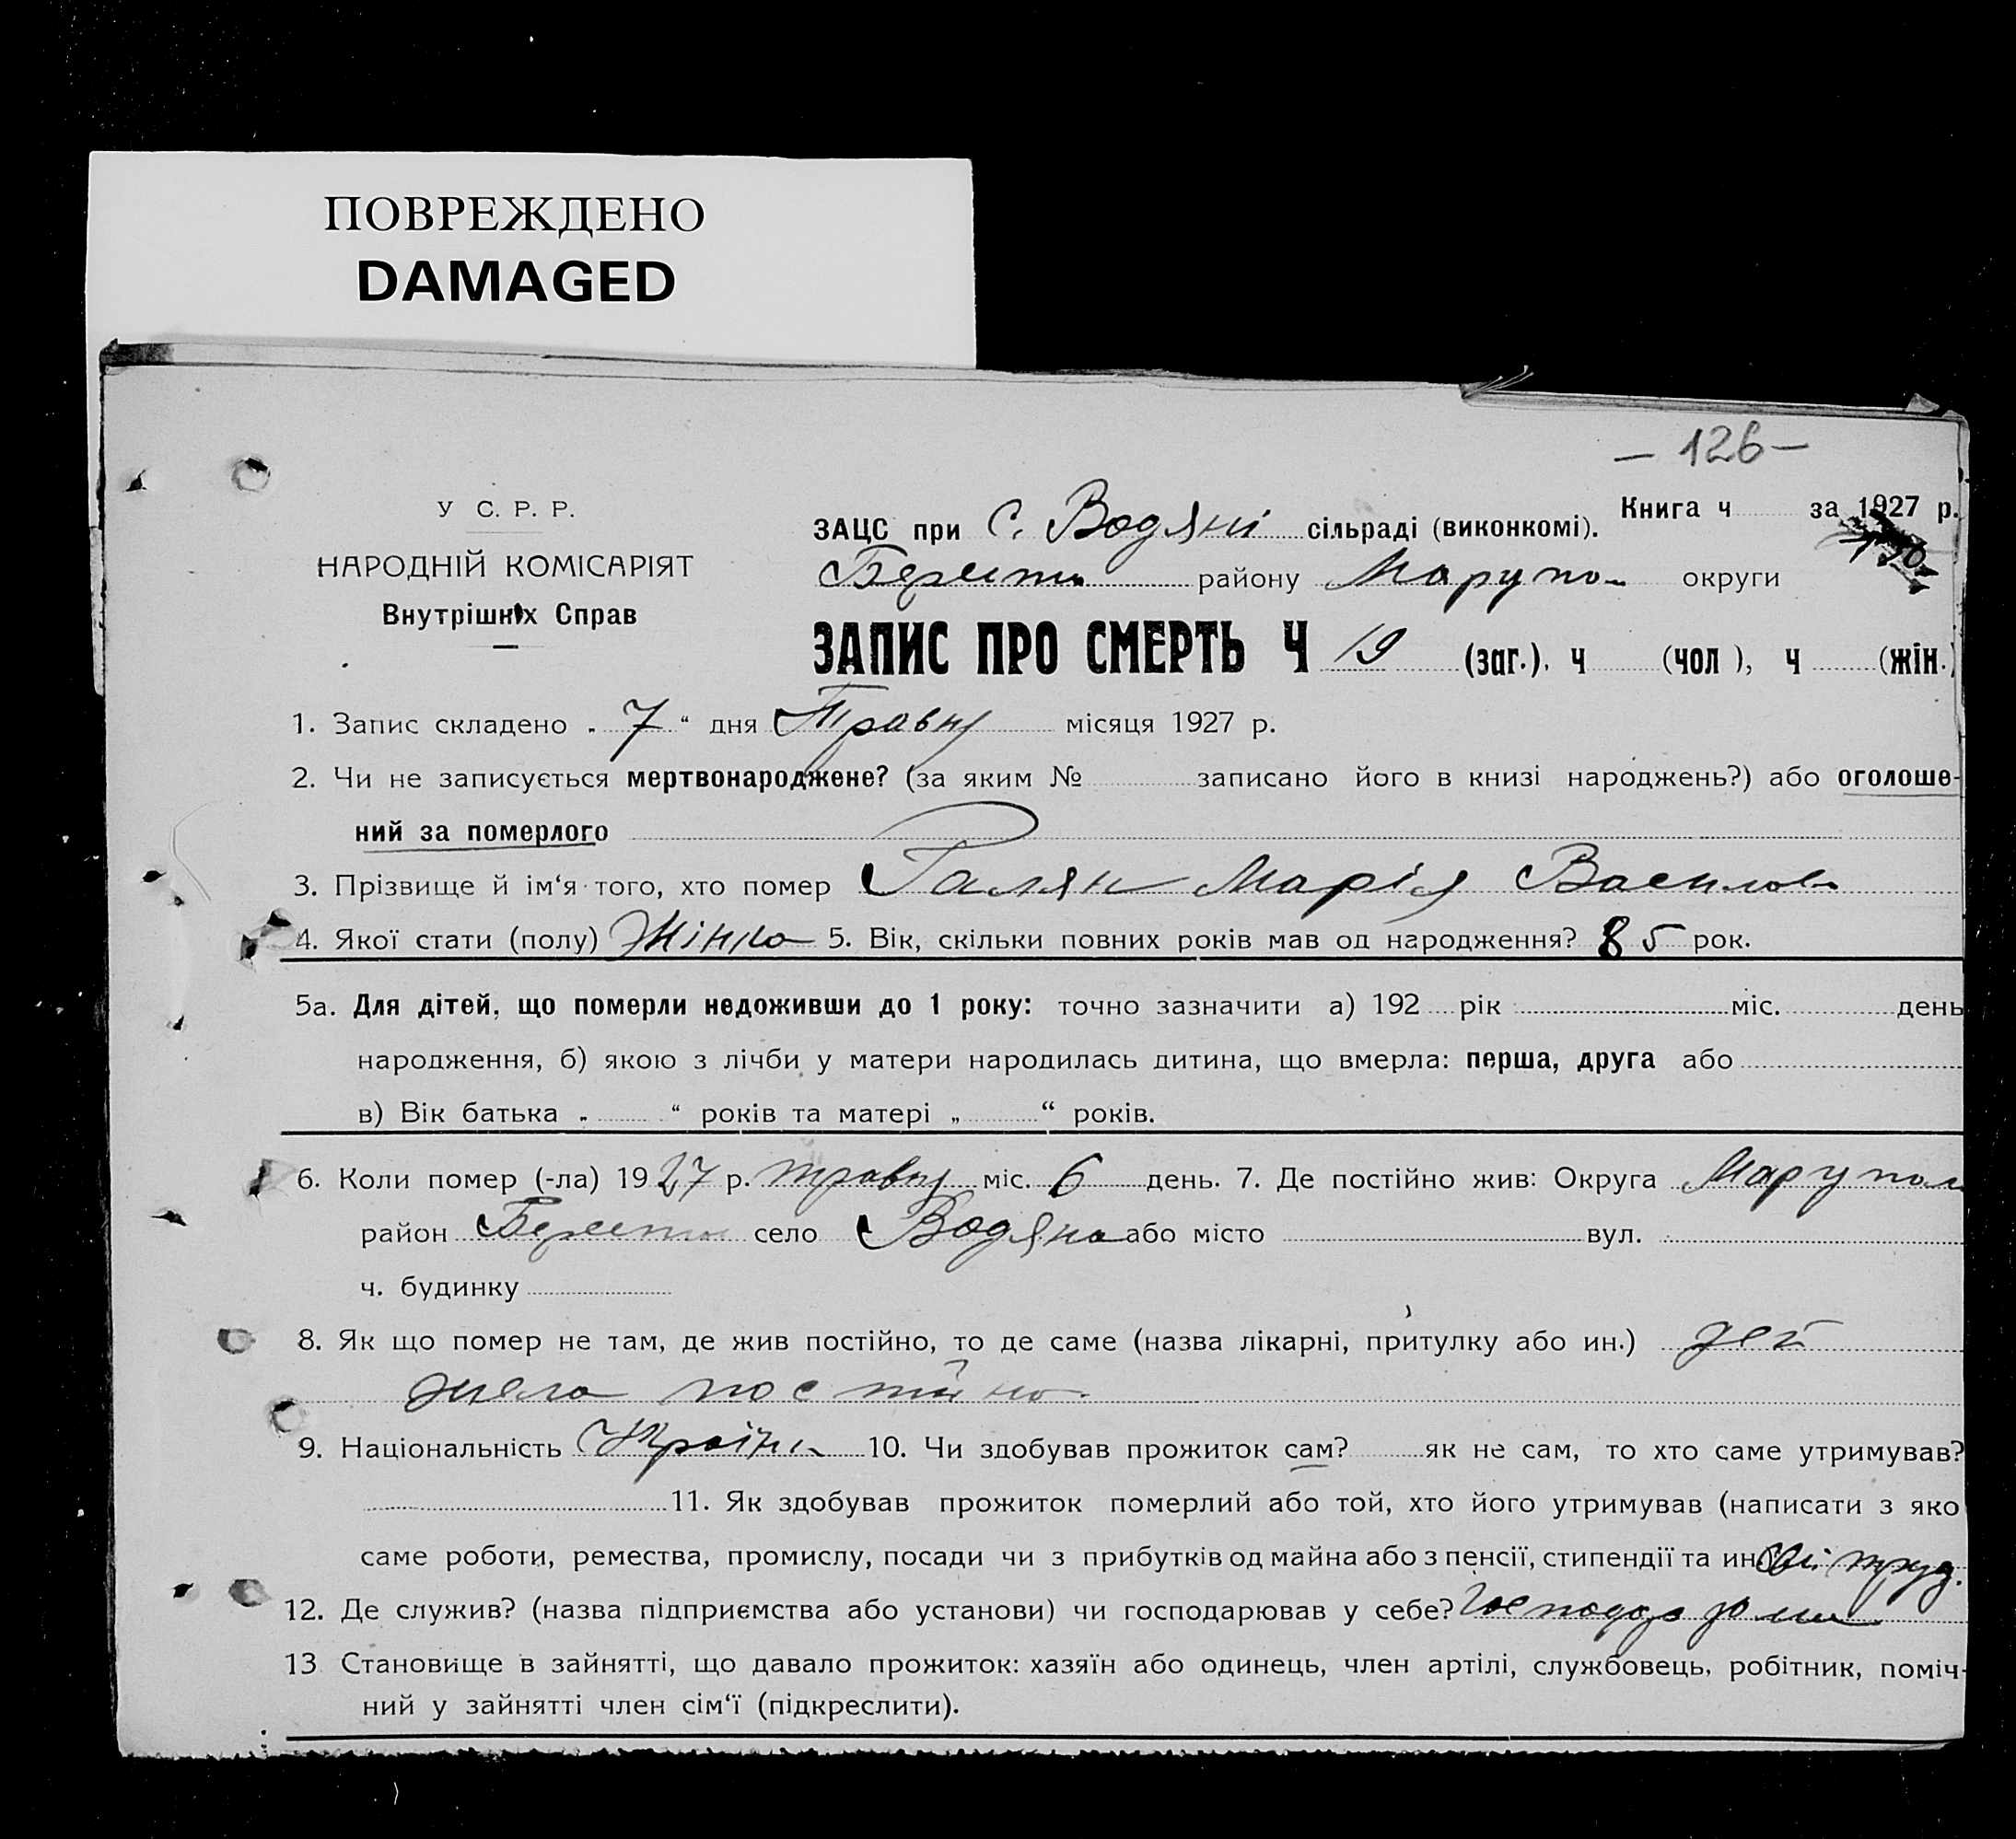 ПОВРЕЖДЕНО
DAMAGED
— 126 —
У С. Р. Р.
НАРОДНІЙ КОМІСАРІЯТ
Внутрішніх Справ
Книга ч за 1927 р.
ЗАЦС при С. Водяні сільраді (виконкомі).
району Маріупо округи
ЗАПИС ПРО СМЕРТЬ Ч 19 (заг.). ч (чол ), ч (жін.)
1. Запис складено „ 7 “ дня Травня місяця 1927 р.
2. Чи не записується мертвонароджене? (за яким № записано його в книзі народжень?) або оголоше-
ний за померлого
3. Прізвище й ім‘я того, хто помер Галян Марія Василов
4. Якої стати (полу) Жінка 5. Вік, скільки повних років мав од народження? 85 рок.
5а. Для дітей, що померли недоживши до 1 року: точно зазначити а) 192 рік міс. день
народження, б) якою з лічби у матери народилась дитина, що вмерла: перша, друга або
в) Вік батька „ “ років та матері „ “ років.
6. Коли помер (-ла) 1927 р. травня міс. 6 день. 7. Де постійно жив: Округа Маріупол
район село Водяна або місто вул.
ч. будинку
8. Як що помер не там, де жив постійно, то де саме (назва лікарні, притулку або ин.) дей
жела постійно
9. Національність Україн 10. Чи здобував прожиток сам? як не сам, то хто саме утримував?
11. Як здобував прожиток померлий або той, хто його утримував (написати з яко
саме роботи, ремества, промислу, посади чи з прибутків од майна або з пенсії, стипендії та ин. труд.
12. Де служив? (назва підприємства або установи) чи господарював у себе?
13 Становище в зайнятті, що давало прожиток: хазяїн або одинець, член артілі, службовець, робітник, поміч-
ний у зайнятті член сім‘ї (підкреслити).